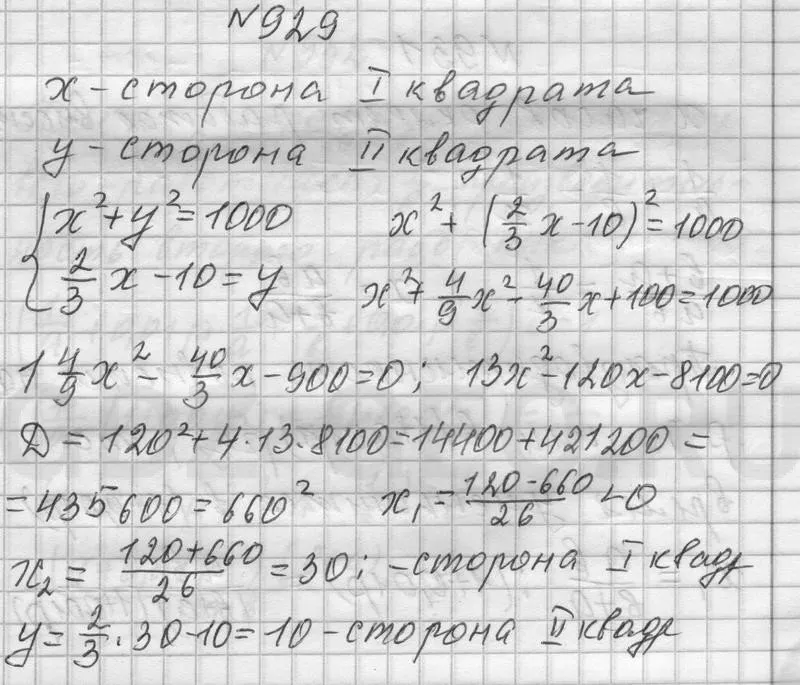 №929
x - сторона I квадрата
y - сторона II квадрата
{ x² + y² = 1000     x² + (2/3 x - 10)² = 1000
{ 2/3 x - 10 = y     x² + 4/9 x² - 40/3 x + 100 = 1000
1 4/9 x² - 40/3 x - 900 = 0; 13x² - 120x - 8100 = 0
D = 120² + 4 · 13 · 8100 = 14400 + 421200 =
= 435600 = 660²     x₁ = (120 - 660)/26 < 0
x₂ = (120 + 660)/26 = 30; - сторона I квадр
y = 2/3 · 30 - 10 = 10 - сторона II квадр